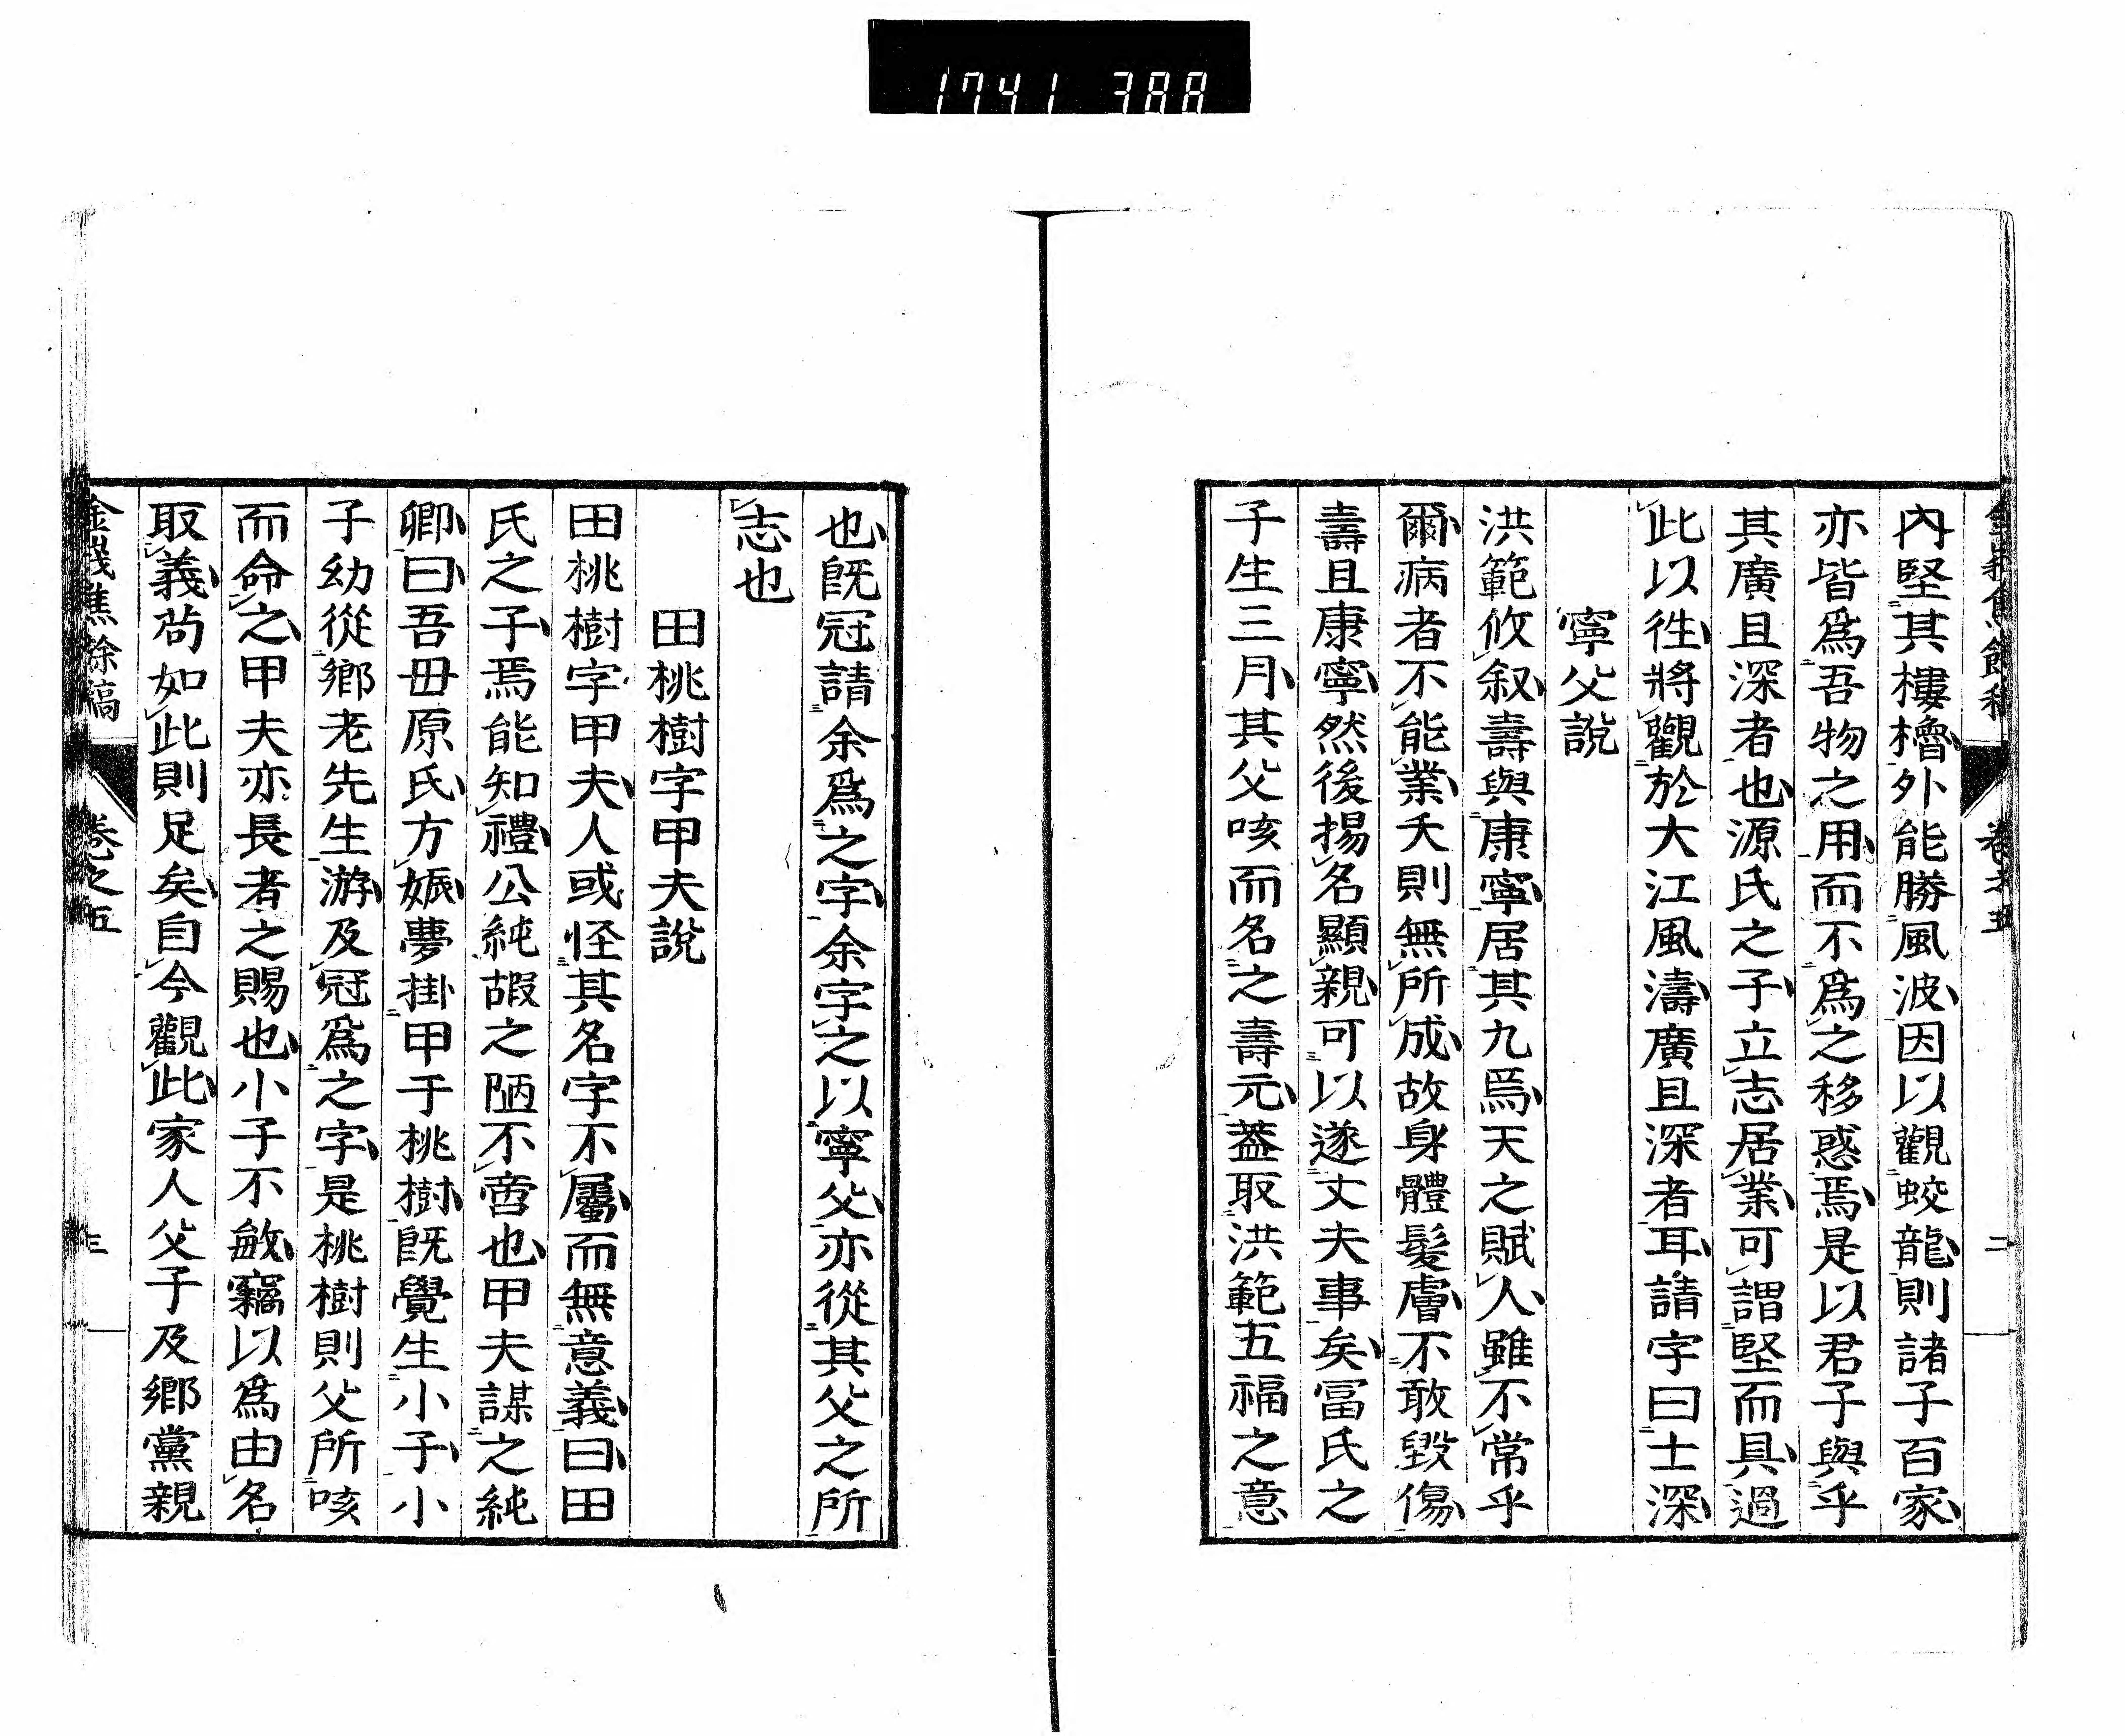 1741 388
內堅其樓櫓外能勝風波因以觀蛟龍則諸子百家
亦皆爲吾物之用而不爲之移惑焉是以君子與乎
其廣且深者也源氏之子立志居業可謂堅而具過
此以徃將觀於大江風濤廣且深者耳請字曰士深
寧父說
洪範攸叙壽與康寧居其九焉天之賦人雖不常乎
爾病者不能業夭則無所成故身體髮膚不敢毀傷
壽且康寧然後揚名顯親可以遂丈夫事矣冨氏之
子生三月其父咳而名之壽元葢取洪範五福之意
卷之五
二
也旣冠請余爲之字余字之以寧父亦從其父之所
志也
田桃樹字甲夫說
田桃樹字甲夫人或怪其名字不屬而無意義曰田
氏之子焉能知禮公純嘏之陋不啻也甲夫謀之純
卿曰吾毋原氏方娠夢掛甲于桃樹旣覺生小子小
子幼從鄉老先生游及冠爲之字是桃樹則父所咳
而命之甲夫亦長者之賜也小子不敏竊以爲由名
取義苟如此則足矣自今觀此家人父子及鄉黨親
卷之五
三